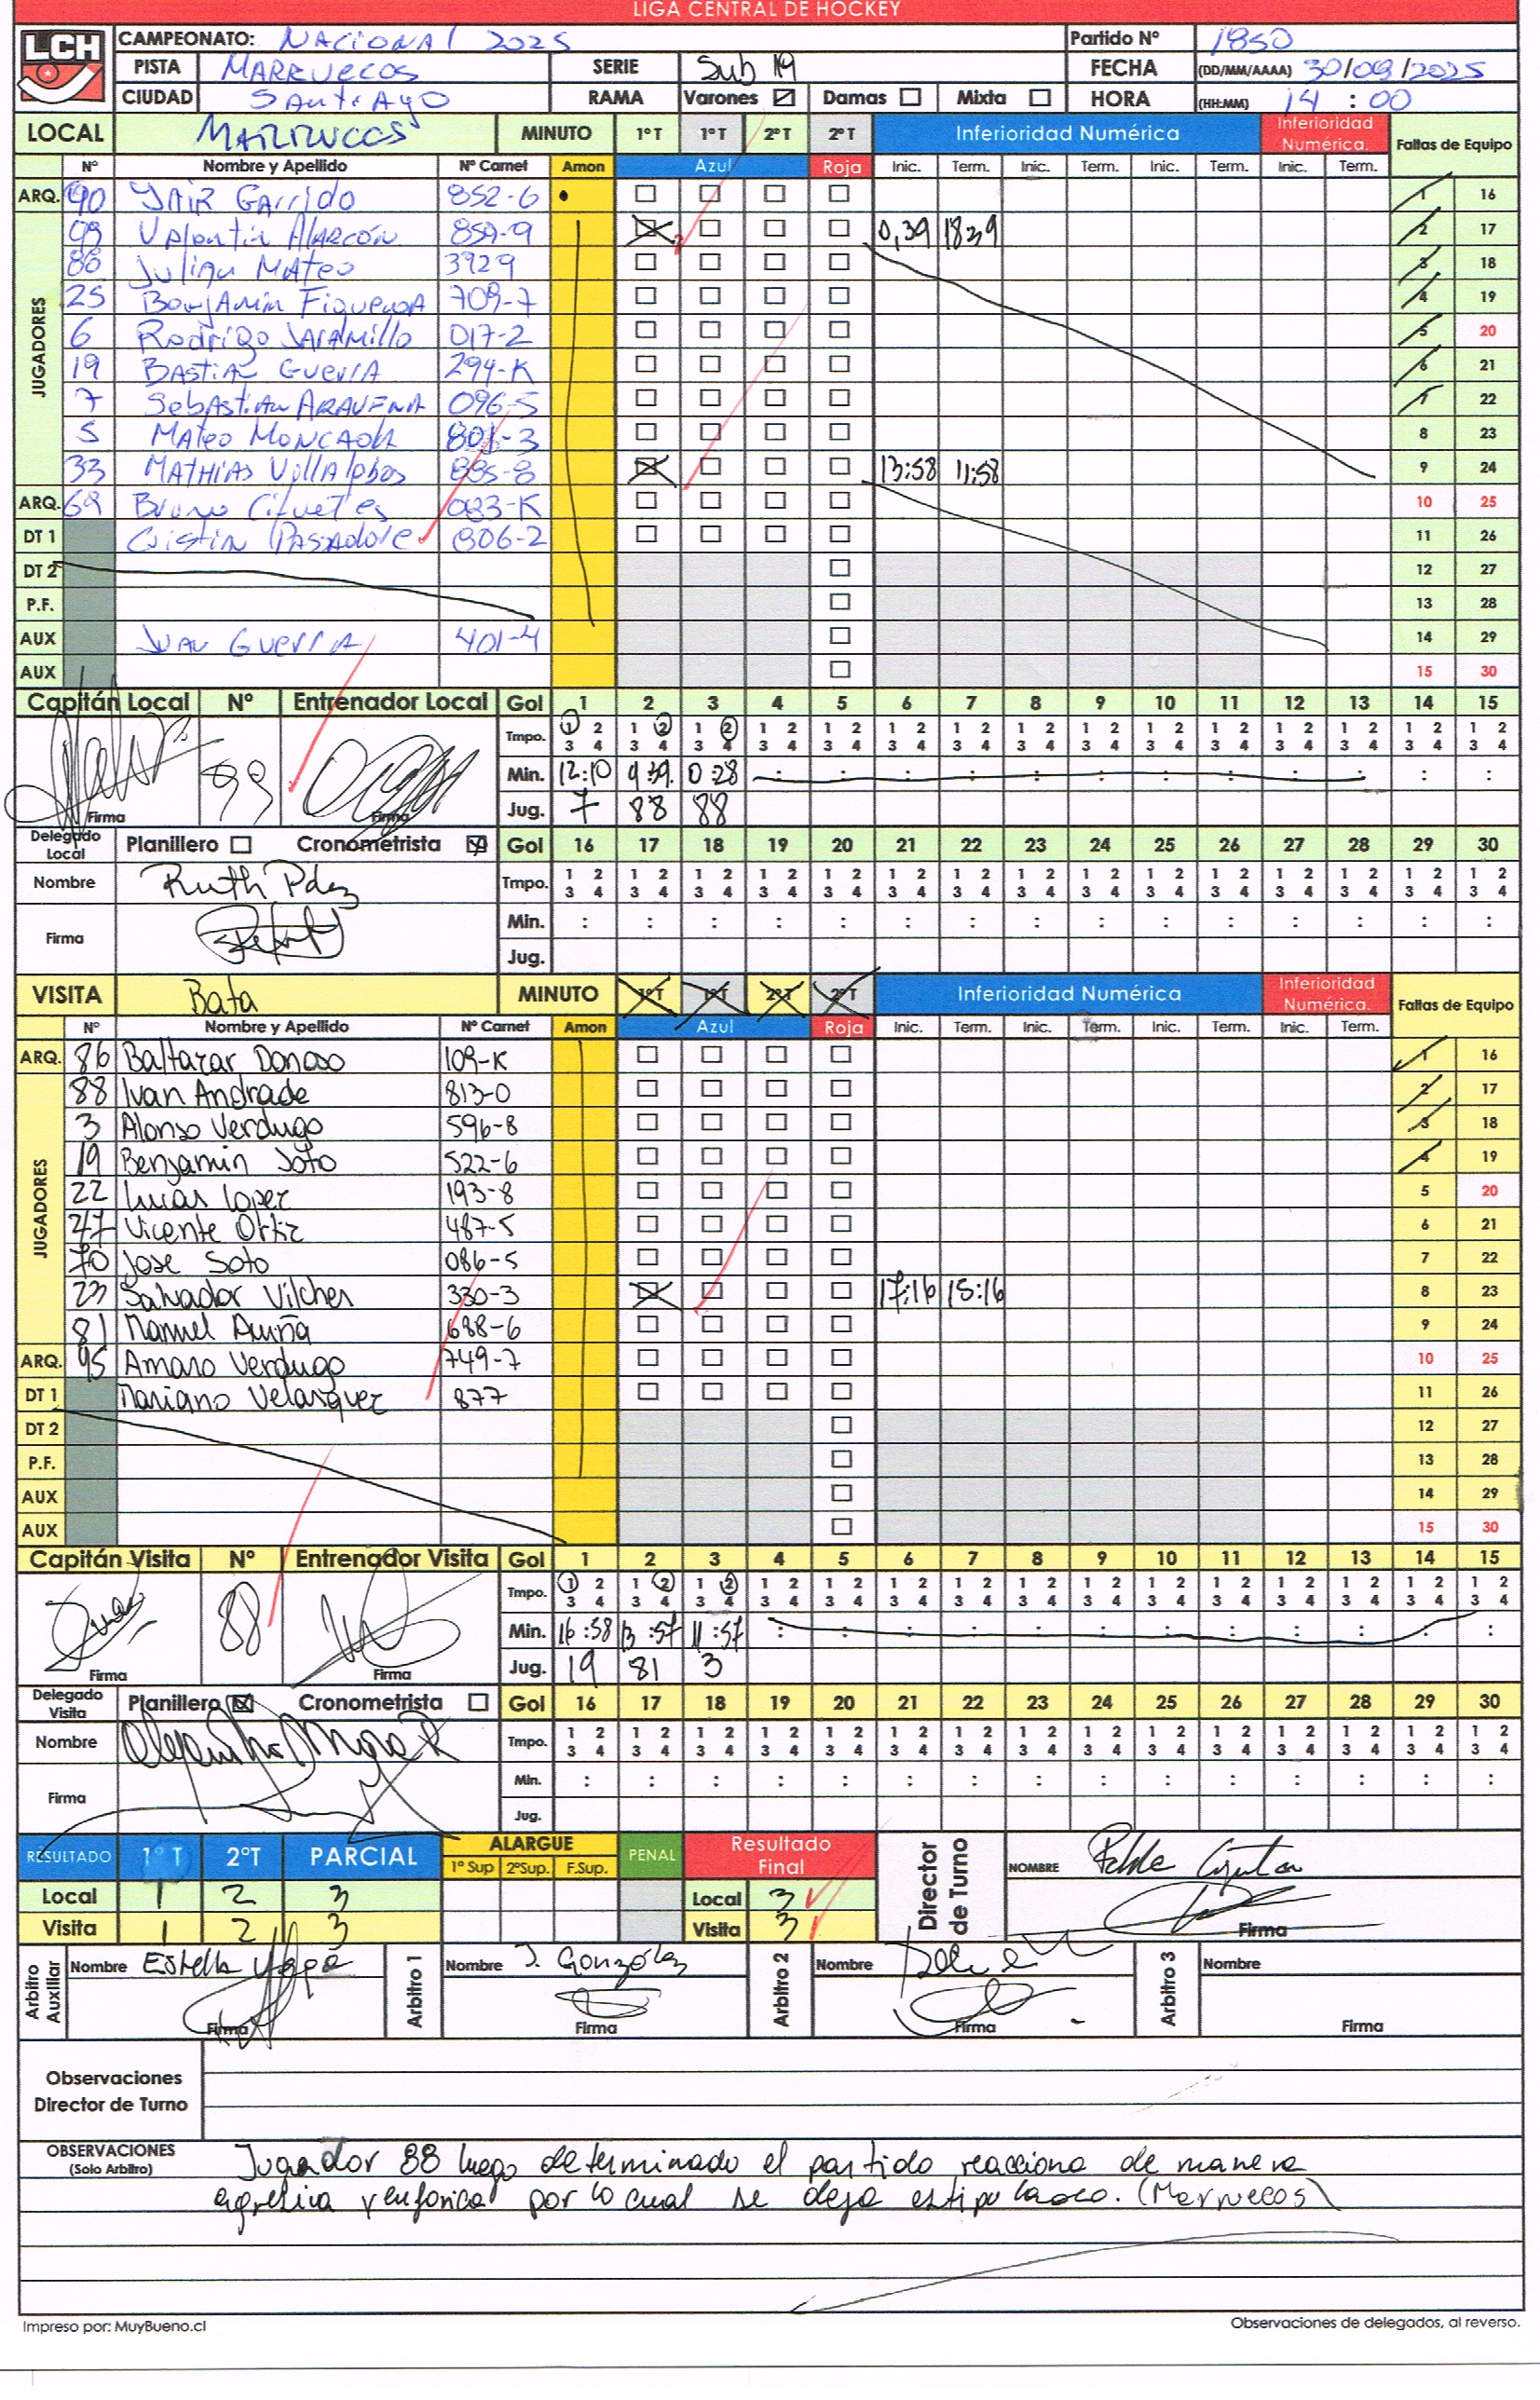 LIGA CENTRAL DE HOCKEY
LCH
CAMPEONATO: NACIONAL 2025 Partido Nº 1850
PISTA MARRUECOS SERIE Sub 19 FECHA (DD/MM/AAAA) 30/09/2025
CIUDAD SANTIAGO RAMA Varones Damas Mixta HORA (HH:MM) 14 : 00
LOCAL MARRUECOS MINUTO 1º T 1º T 2º T 2º T Inferioridad Numérica Inferioridad Numérica. Faltas de Equipo
Nº Nombre y Apellido Nº Carnet Amon Azul Roja Inic. Term. Inic. Term. Inic. Term. Inic. Term.
JUGADORES
ARQ. 90 YAIR GArrido 852-6 1 16
99 Valentin Alarcón 859-9 0,39 18:39 2 17
88 Julian Mateo 3929 3 18
25 Benjamin Figueroa 709-7 4 19
6 Rodrigo Jaramillo 017-2 5 20
19 Bastian Guerra 294-K 6 21
7 Sebastian Aravena 096-5 7 22
5 Mateo Moncada 801-3 8 23
33 Mathias Villalobos 885-8 13:58 11:58 9 24
ARQ. 69 Bruno 083-K 10 25
DT 1 806-2 11 26
DT 2 12 27
P.F. 13 28
AUX Juan Guerra 401-4 14 29
AUX 15 30
Capitán Local Nº Entrenador Local Gol 1 2 3 4 5 6 7 8 9 10 11 12 13 14 15
Tmpo. 1 2 3 4 1 2 3 4 1 2 3 4 1 2 3 4 1 2 3 4 1 2 3 4 1 2 3 4 1 2 3 4 1 2 3 4 1 2 3 4 1 2 3 4 1 2 3 4 1 2 3 4 1 2 3 4 1 2 3 4
99 Min. 12:10 9:39. 0:28 : : : : : : : : : : : :
Firma Firma Jug. 7 88 88
Delegado Local Planillero Cronometrista Gol 16 17 18 19 20 21 22 23 24 25 26 27 28 29 30
Nombre Ruth Tmpo. 1 2 3 4 1 2 3 4 1 2 3 4 1 2 3 4 1 2 3 4 1 2 3 4 1 2 3 4 1 2 3 4 1 2 3 4 1 2 3 4 1 2 3 4 1 2 3 4 1 2 3 4 1 2 3 4 1 2 3 4
Firma Min. : : : : : : : : : : : : : : :
Jug.
VISITA Bata MINUTO 1º T 1º T 2º T 2º T Inferioridad Numérica Inferioridad Numérica. Faltas de Equipo
Nº Nombre y Apellido Nº Carnet Amon Azul Roja Inic. Term. Inic. Term. Inic. Term. Inic. Term.
JUGADORES
ARQ. 86 Baltazar Donoso 109-K 1 16
88 Ivan Andrade 813-0 2 17
3 Alonso Verdugo 596-8 3 18
19 Benjamin Soto 522-6 4 19
22 Lucas Lopez 193-8 5 20
27 Vicente Ortiz 487-5 6 21
70 Jose Soto 086-5 7 22
23 Salvador Vilches 330-3 17:16 15:16 8 23
81 Manuel 688-6 9 24
ARQ. 95 Amaro Verdugo 749-7 10 25
DT 1 Mariano Velasquez 877 11 26
DT 2 12 27
P.F. 13 28
AUX 14 29
AUX 15 30
Capitán Visita Nº Entrenador Visita Gol 1 2 3 4 5 6 7 8 9 10 11 12 13 14 15
Tmpo. 1 2 3 4 1 2 3 4 1 2 3 4 1 2 3 4 1 2 3 4 1 2 3 4 1 2 3 4 1 2 3 4 1 2 3 4 1 2 3 4 1 2 3 4 1 2 3 4 1 2 3 4 1 2 3 4 1 2 3 4
88 Min. 16:58 13:57 11:57 : : : : : : : : : : : :
Firma Firma Jug. 19 81 3
Delegado Visita Planillero Cronometrista Gol 16 17 18 19 20 21 22 23 24 25 26 27 28 29 30
Nombre Tmpo. 1 2 3 4 1 2 3 4 1 2 3 4 1 2 3 4 1 2 3 4 1 2 3 4 1 2 3 4 1 2 3 4 1 2 3 4 1 2 3 4 1 2 3 4 1 2 3 4 1 2 3 4 1 2 3 4 1 2 3 4
Firma Min. : : : : : : : : : : : : : : :
Jug.
RESULTADO 1º T 2ºT PARCIAL ALARGUE 1º Sup 2ºSup. F.Sup. PENAL Resultado Final Director de Turno NOMBRE
Local 1 2 3 Local 3
Visita 1 2 3 Visita 3 Firma
Arbitro Auxiliar Nombre Estella Arbitro 1 Nombre J. González Arbitro 2 Nombre Arbitro 3 Nombre
Firma Firma Firma Firma
Observaciones Director de Turno
OBSERVACIONES (Solo Arbitro) Jugador 88 luego de terminado el partido reacciona de manera
agresiva y euforica por lo cual se deja estipulado. (Marruecos)
Impreso por: MuyBueno.cl Observaciones de delegados, al reverso.